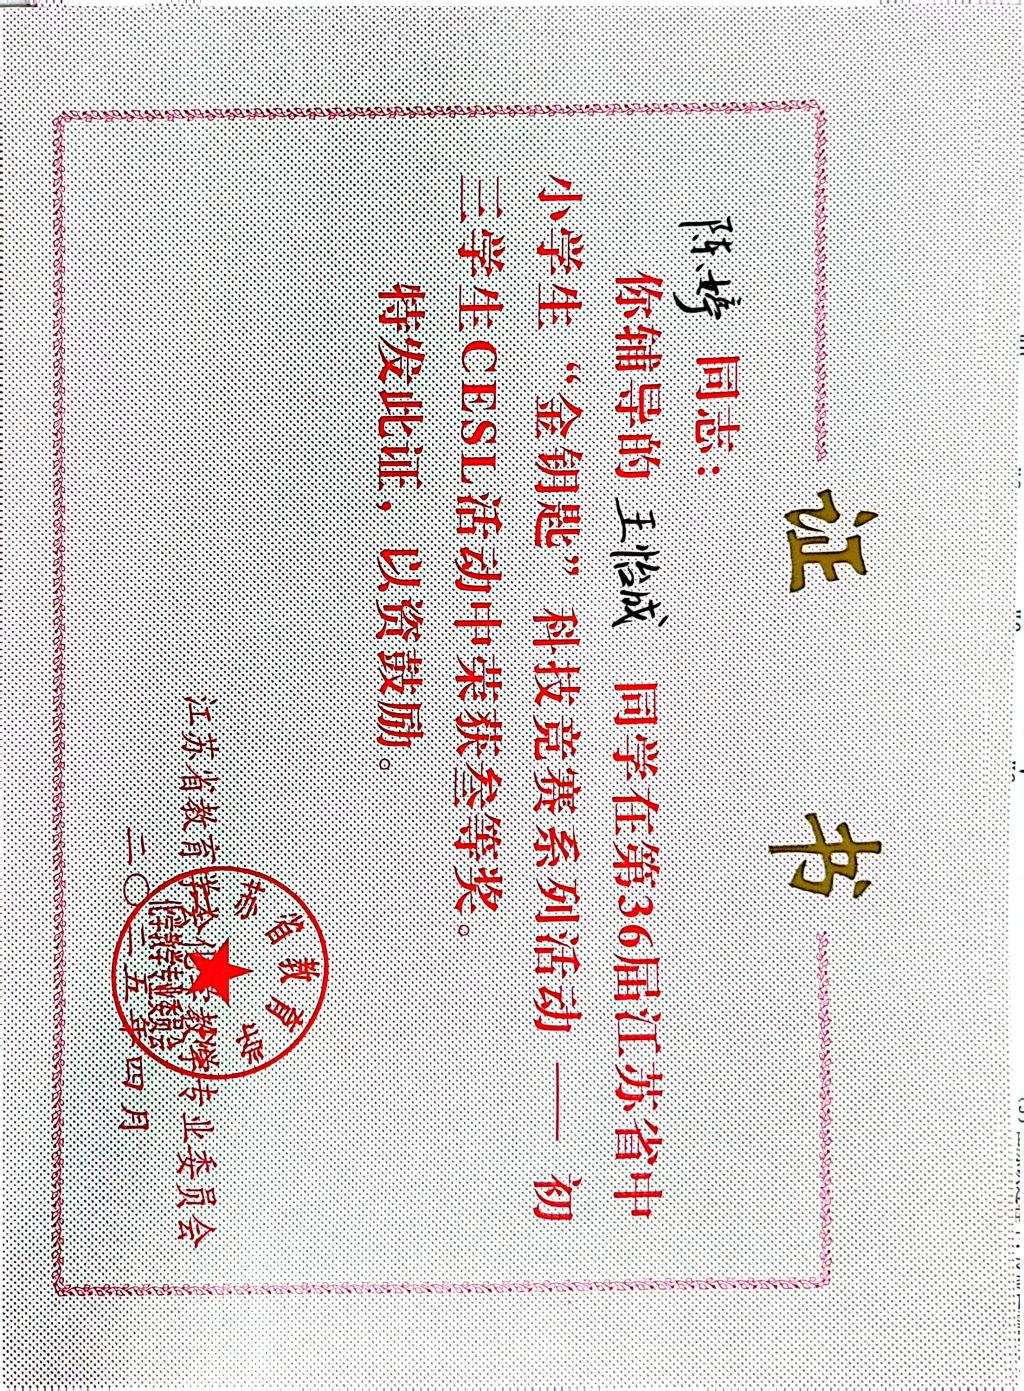 证 书
陈婷 同志：
你辅导的 王怡成 同学在第36届江苏省中
小学生“金钥匙”科技竞赛系列活动——初
三学生CESL活动中荣获叁等奖。
特发此证，以资鼓励。
江苏省教育学会化学教学专业委员会
二〇二五年四月